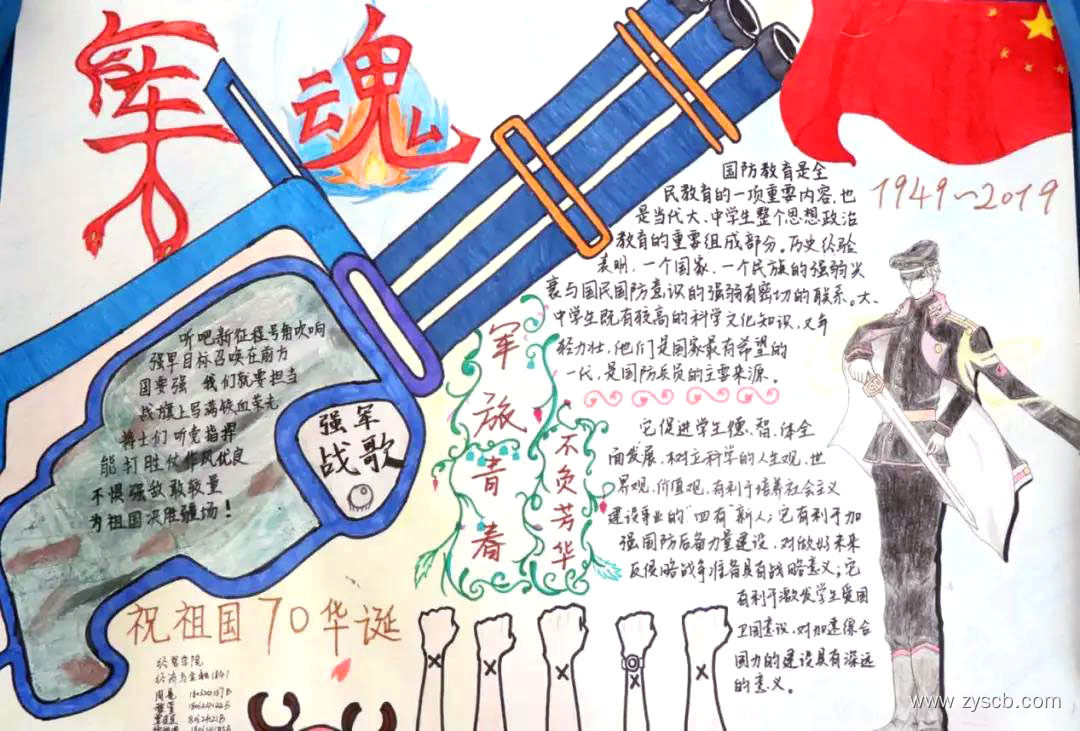 军魂
1949~2019
国防教育是全
民教育的一项重要内容,也
是当代大、中学生整个思想政治
教育的重要组成部分。历史经验
表明,一个国家、一个民族的强弱兴
衰与国民国防意识的强弱有密切的联系。大、
中学生既有较高的科学文化知识,又年
轻力壮,他们是国家最有希望的
一代,是国防兵员的主要来源。
它促进学生德、智、体全
面发展,树立科学的人生观、世
界观、价值观,有利于培养社会主义
建设事业的"四有"新人;它有利于加
强国防后备力量建设,对做好未来
反侵略战争准备具有战略意义;它
有利于激发学生爱国
卫国意识,对加速综合
国力的建设具有深远
的意义。
听吧新征程号角吹响
强军目标召唤在前方
国要强 我们就要担当
战旗上写满铁血荣光
将士们听党指挥
能打胜仗作风优良
不惧强敌敢较量
为祖国决胜疆场!
强军
战歌
军旅青春
不负芳华
祝祖国70华诞
经管学院
www.zyscb.com